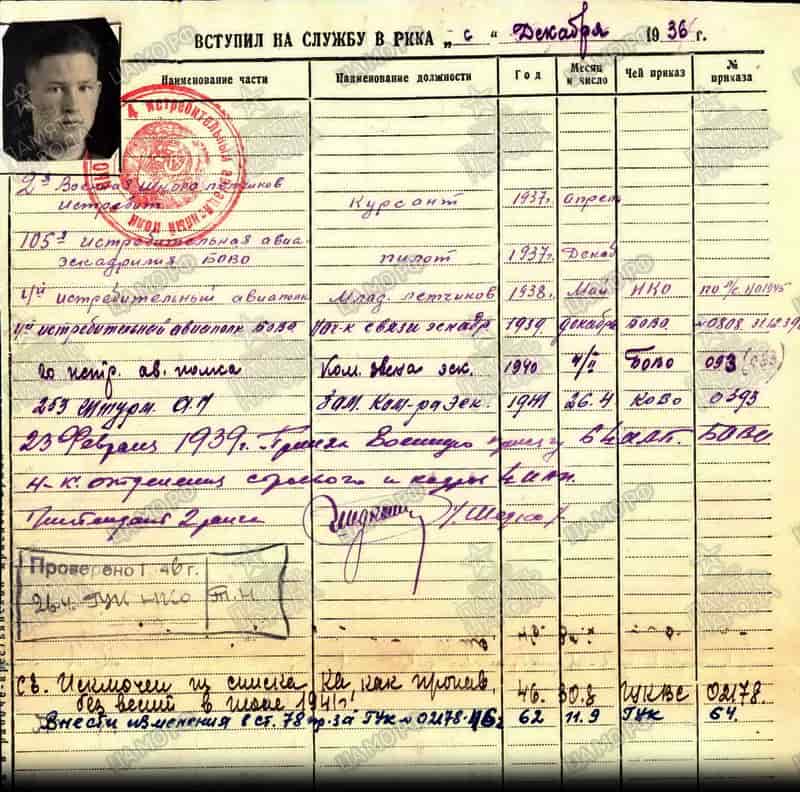 ВСТУПИЛ НА СЛУЖБУ В РККА „с“ Декабря 1936 г.
Наименование части Наименование должности Год Месяц и число Чей приказ № приказа
4 истребительный
2я Военная школа летчиков
истребит Курсант 1937г. апрел
105я истребительная авиа
эскадрилия БОВО пилот 1937г. Декаб
4й истребительный авиаполк Млад. летчиков 1938г. Май НКО
4й истребительной авиаполк БОВО Нач-к связи эскадр 1939 декабрь БОВО №0808 31.12.39
истр. ав. полка Ком. звена эск. 1940 4/II БОВО 093 (093)
253 штурм. А.П Зам. Ком-ра Эск. 1941 26.4 КОВО 0393
23 Февраля 1939г. Принял Военную присягу БОВО
Н-к. отделения строевого и кадров
Интендант 2 ранга
Проверено 46 г.
ГУК НКО
св. Исключен из списка КА, как пропав. 46. 30.8 ГУКВС 02178.
без вести в июле 1941г.
Внести изменения в ст. 78 пр-за ГУК №02178-46г 62 11.9 ГУК 64.
ЦАМО РФ
ПАМЯТЬ НАРОДА